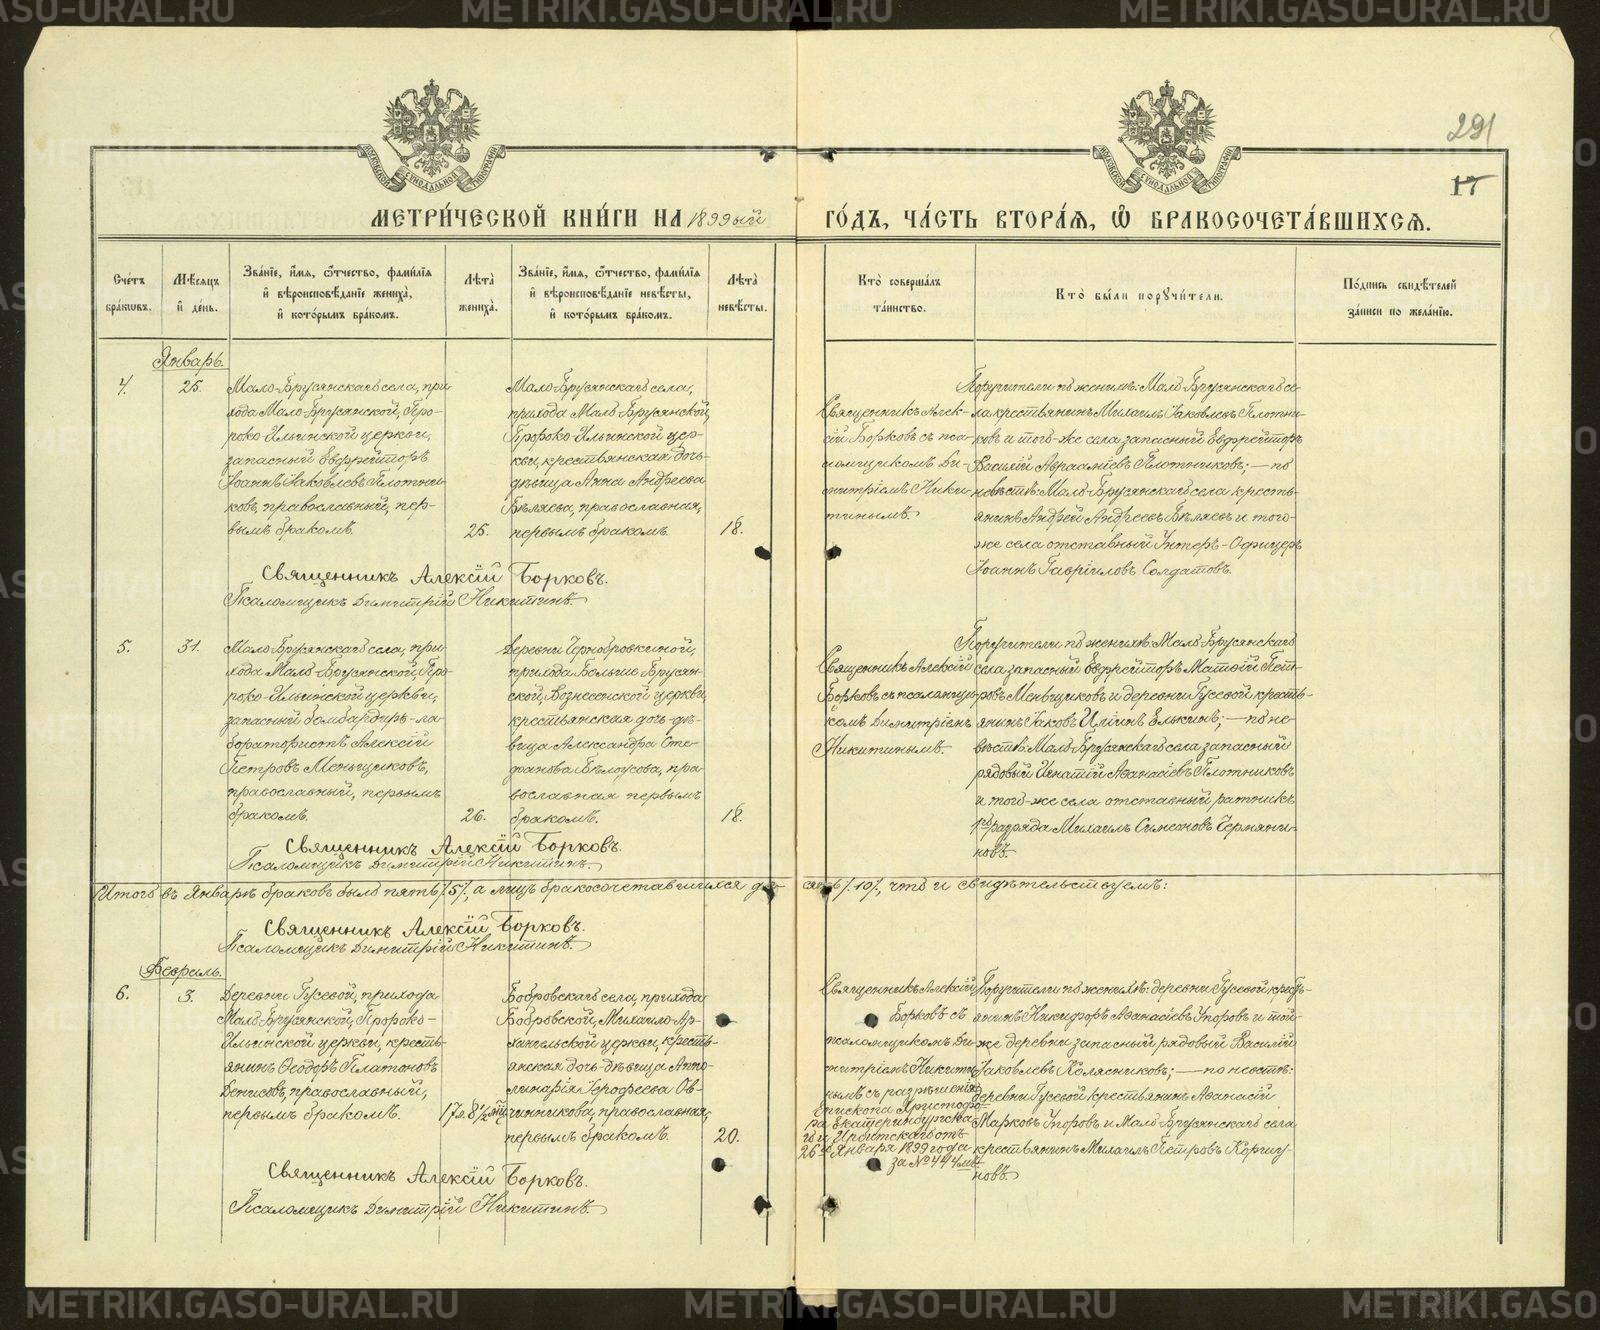 291
17
МЕТРИ́ЧЕСКОЙ КНИ́ГИ НА 1899ый ГО́ДЪ, ЧА́СТЬ ВТОРА́Я, Ѿ БРАКОСОЧЕТА́ВШИХСЯ.
Сче́тъ бра́кѡвъ.
Мѣ́сяцъ и҆ де́нь.
Зва́нїе, и҆́мя, ѻ҆́тчество, фами́лїя и҆ вѣроисповѣ́данїе жениха̀, и҆ кото́рымъ бра́комъ.
Лѣ́та жениха̀.
Зва́нїе, и҆́мя, ѻ҆́тчество, фами́лїя и҆ вѣроисповѣ́данїе невѣ́сты, и҆ кото́рымъ бра́комъ.
Лѣ́та невѣ́сты.
Кто̀ соверша́лъ та́инство.
Кто̀ бы́ли пору́чители.
По́дпись свидѣ́телей за́писи по жела́нїю.
Январь.
4.
25.
Мало-Брусянскаго села, при-
хода Мало-Брусянской, Про-
роко-Ильинской церкви,
запасный Ефрейторъ
Іоаннъ Іаковлевъ Плотни-
ковъ, православный, пер-
вымъ бракомъ.
25.
Мало-Брусянскаго села,
прихода Мало-Брусянской,
Пророко-Ильинской цер-
кви, крестьянская дочь-
дѣвица Анна Андреева
Бѣляева, православная,
первымъ бракомъ.
18.
Священникъ Алек-
сій Борковъ съ пса-
ломщикомъ Ди-
митріемъ Ники-
тинымъ.
Поручители по женихѣ: Мало-Брусянскаго се-
ла крестьянинъ Михаилъ Іаковлевъ Плотни-
ковъ и того-же села запасный Ефрейторъ
Василій Авраамiевъ Плотниковъ; — по
невѣстѣ: Мало-Брусянскаго села кресть-
янинъ Андрей Андреевъ Бѣляевъ и того-
же села отставный Унтеръ-Офицеръ
Іоаннъ Гавріиловъ Солдатовъ.
Священникъ Алексій Борковъ.
Псаломщикъ Димитрій Никитинъ.
5.
31.
Мало-Брусянскаго села, при-
хода Мало-Брусянской, Про-
роко-Ильинской церкви,
запасный бомбардиръ-ла-
боратористъ Алексій
Петровъ Меньщиковъ,
православный, первымъ
бракомъ.
26.
Деревни Чернобровкиной,
прихода Больше-Брусян-
ской, Вознесенской церкви,
крестьянская дочь-дѣ-
вица Александра Сте-
фанова Бѣлоусова, пра-
вославная первымъ
бракомъ.
18.
Священникъ Алексій
Борковъ съ псаломщи-
комъ Димитріемъ
Никитинымъ.
Поручители по женихѣ: Мало-Брусянскаго
села запасный Ефрейторъ Матѳій Пет-
ровъ Меньщиковъ и деревни Гусевой кресть-
янинъ Іаковъ Иліинъ Елькинъ; — по не-
вѣстѣ: Мало-Брусянскаго села запасный
рядовый Игнатій Аѳанасіевъ Плотниковъ
и того-же села отставный ратникъ
1го разряда Михаилъ Симеоновъ Чермяни-
новъ.
Священникъ Алексій Борковъ.
Псаломщикъ Димитрій Никитинъ.
Итого въ Январѣ браковъ было пять /5/, а лицъ бракосочетавшихся де- сять /10/, что и свидѣтельствуемъ:
Священникъ Алексій Борковъ.
Псаломщикъ Димитрій Никитинъ.
Февраль.
6.
3.
Деревни Гусевой, прихода
Мало-Брусянской, Пророко-
Ильинской церкви, кресть-
янинъ Ѳеодоръ Платоновъ
Денисовъ, православный,
первымъ бракомъ.
17л. 8½ мц.
Бобровскаго села, прихода
Бобровской, Михаило-Ар-
хангельской церкви, кресть-
янская дочь-дѣвица Апол-
линарія Іероѳеева Ов-
чинникова, православная,
первымъ бракомъ.
20.
Священникъ Алексій
Борковъ съ
псаломщикомъ Ди-
митріемъ Никити-
нымъ съ разрѣшенія
Епископа Христофо-
ра Екатеринбургска-
го и Ирбитскаго отъ
26го Января 1899 года
за № 444мъ
Поручители по женихѣ: деревни Гусевой кресть-
янинъ Никифоръ Аѳанасіевъ Упоровъ и той-
же деревни запасный рядовый Василій
Іаковлевъ Колясниковъ; — по невѣстѣ:
деревни Гусевой крестьянинъ Аѳанасій
Марковъ Упоровъ и Мало-Брусянскаго села
крестьянинъ Михаилъ Петровъ Коршу-
новъ.
Священникъ Алексій Борковъ.
Псаломщикъ Димитрій Никитинъ.